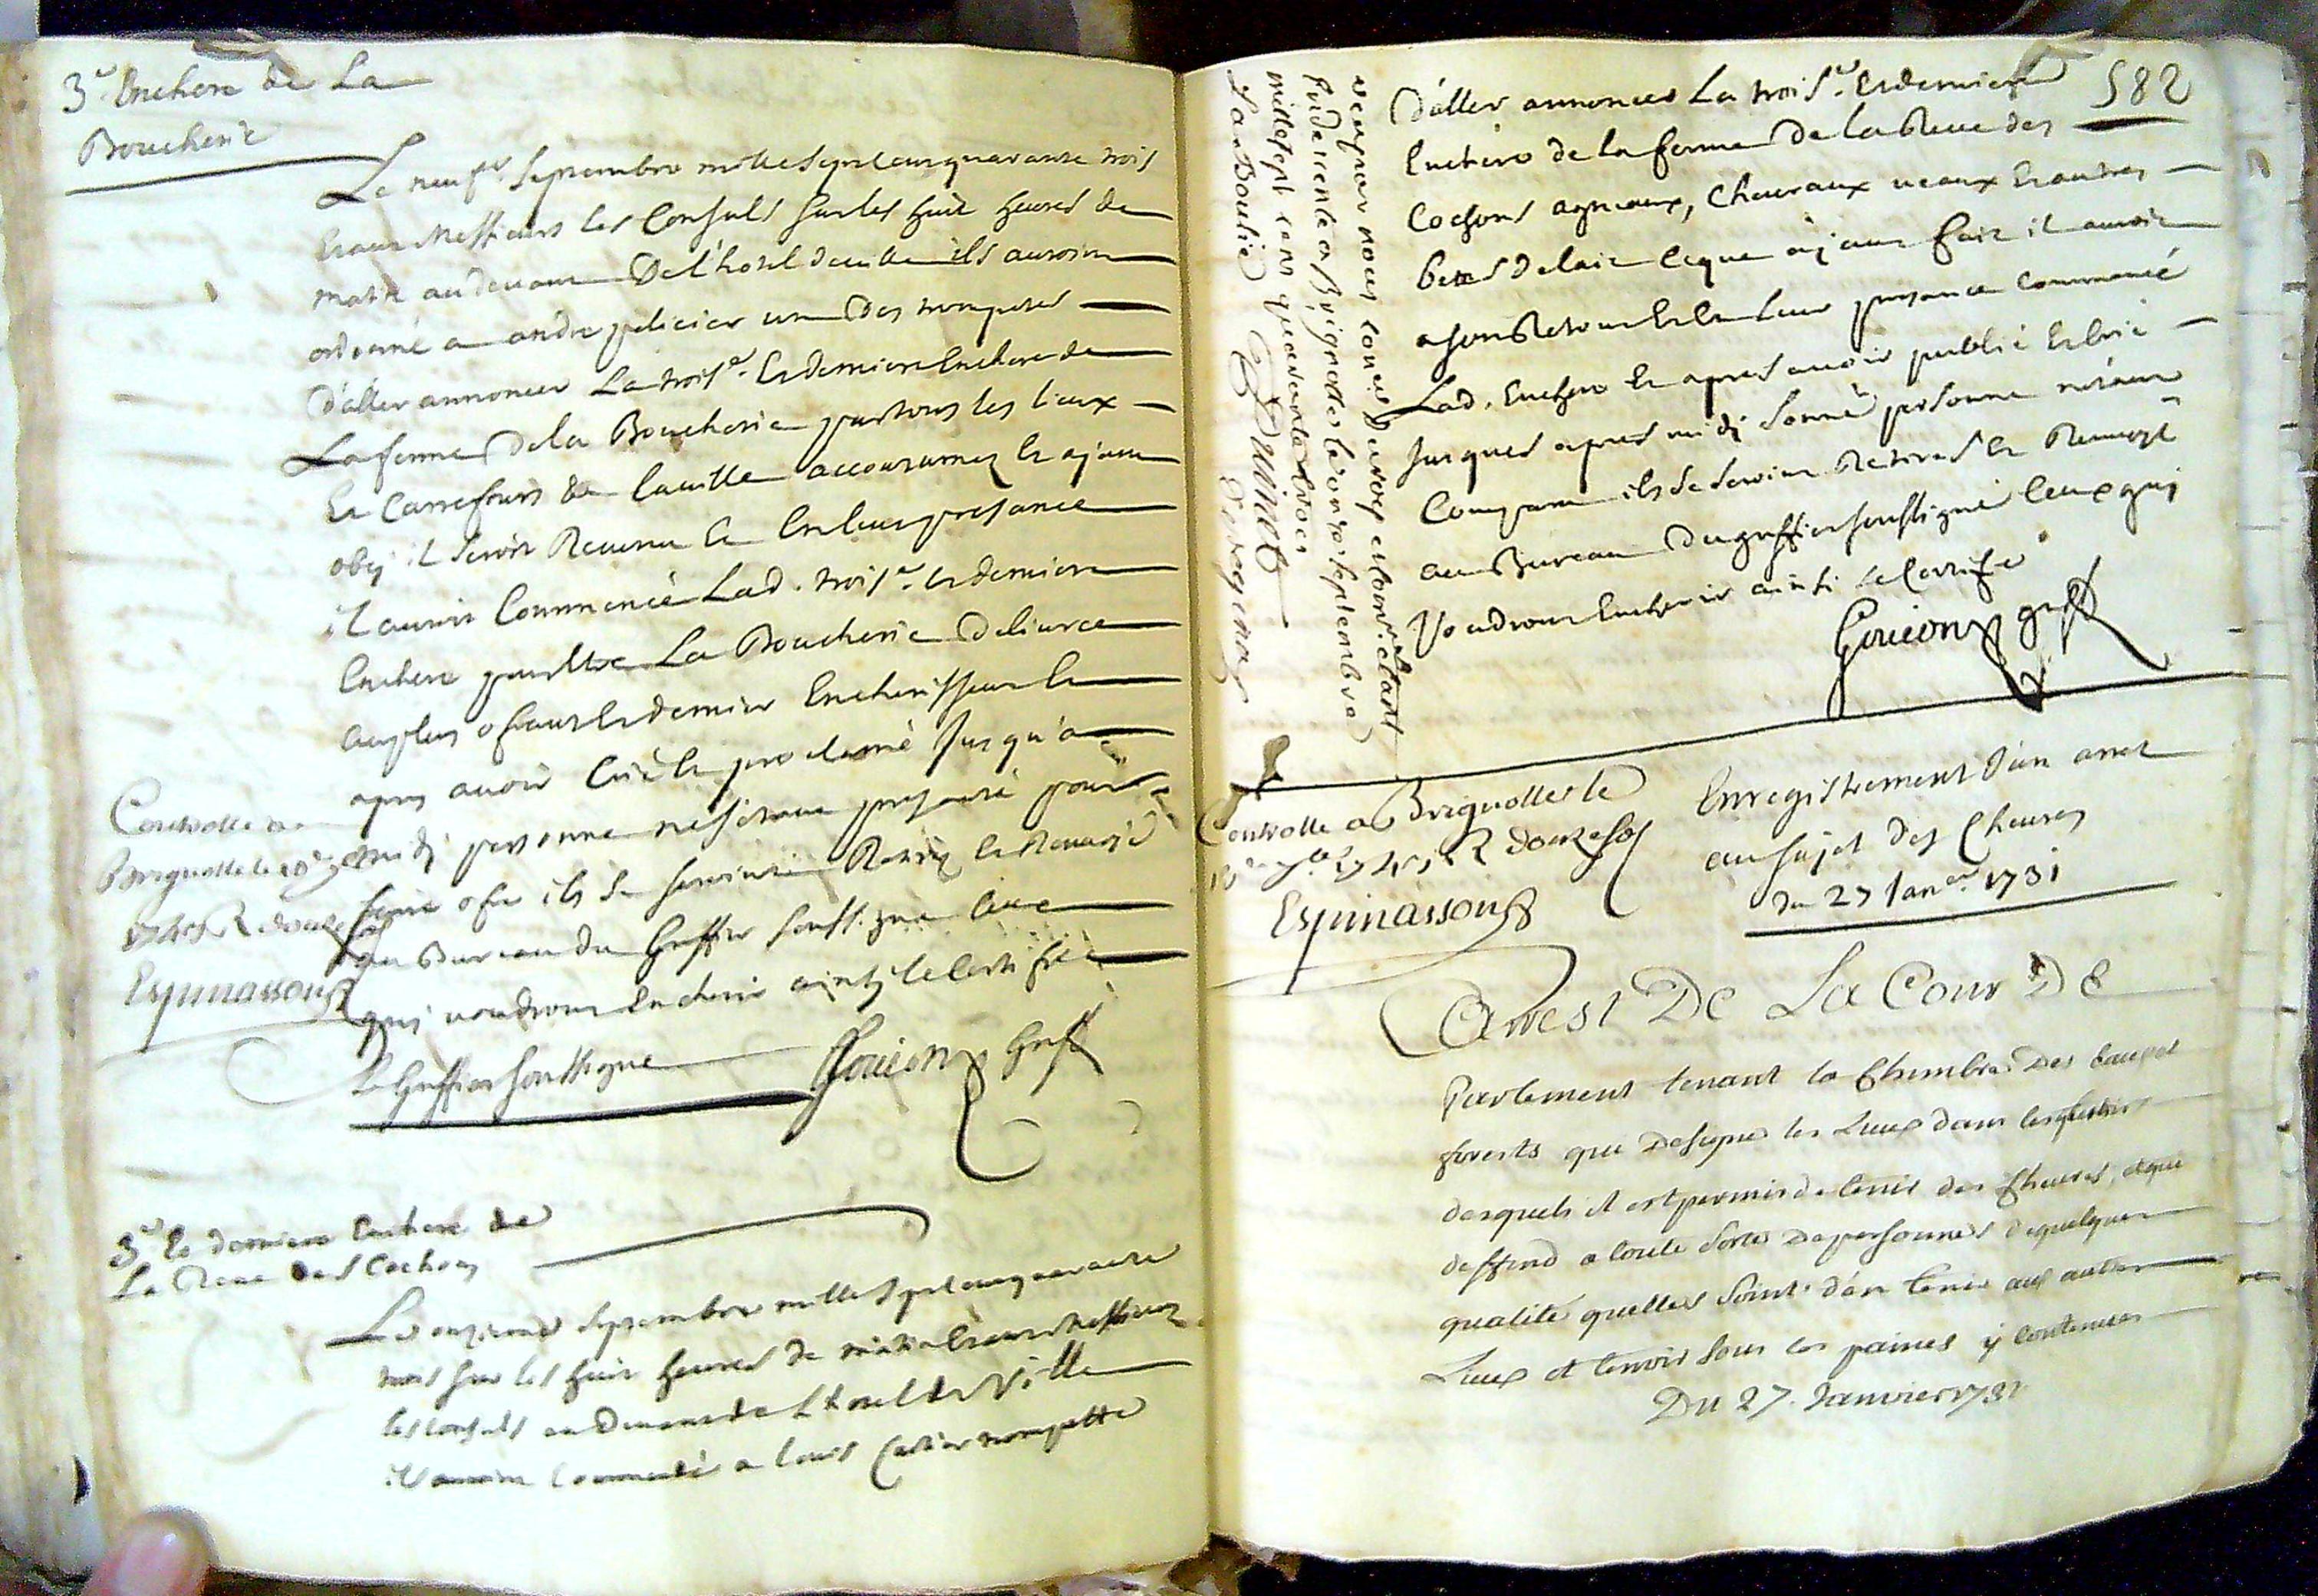 3e Enchere de La
Boucherie
Le neufe Septembre mille Sept Cens quarante trois
Etans Messieurs les Consuls sur les huit heures de
matin au devant De l'hotel deville ils auroint
ordonné a andre pelicier un Des trompetes
D'aller annoncer La troise Et derniere Enchere de
La ferme De la Boucherie par tous les lieux
Et Carrefours de la ville accoutumez Et ayant
obey il Seroit Revenu Et En leur presance
il auroit Commencé Lad. troise et derniere
Enchere pour Etre La Boucherie Delivree
au plus ofrant Et dernier Encherisseur Et
apres avoir Crié Et proclamé Jusqu'a
midi personne ne s'etant presanté pour
faire ofre ils se seroint Retirez Et Renvoyé
au Bureau du Greffier soussigné Ceux
qui voudront Encherir ainsy le Certifie
Le Greffier soussigné Goujon Greff
Controlle a
Brignolle le
1743 R douze sols
Espinasson
3e Et derniere Enchere de
La Reve des Cochons
Le onzieme Septembre mille Sept cens quarante
trois sur les huit heures de matin Etans Messieurs
les Consuls au Devant de L'hotel de Ville
il auroint Commandé a louis trompette
582
D'aller annoncer La troise. Et derniere
Enchere de la ferme De la Reve des
Cochons agneaux, Chevraux veaux Et autres
betes De lait Ce que ayant fait il auroit
a son Retour Et En Leur presance Commencé
Lad. Enchere Et apres avoir publié Et crié
Jusques apres midi Sonné personne n'etant
Comparu ils se seroint Retirés Et Renvoyé
au Bureau Du greffier soussigné Ceux qui
Voudront Encherir ainsi le Certifie
Goujon greff
veu par nous
Brignolles le onze septembre
mille sept cens quarante trois
Controlle a Brignolles le
1743 R douze sols
Espinasson
Enregistrement d'un arret
au sujet des Chevres
du 27 Janer 1731
Arrest De La Cour De
Parlement tenant la Chambre Des eaux et
forests qui Designe les Lieux dans les
desquels il est permis de tenir des Chevres, et qui
deffend a toute Sorte De personnes de quelque
qualité quelles Soint d'en tenir aux autres
Lieux et terroir sous les peines y contenues
Du 27 Janvier 1731